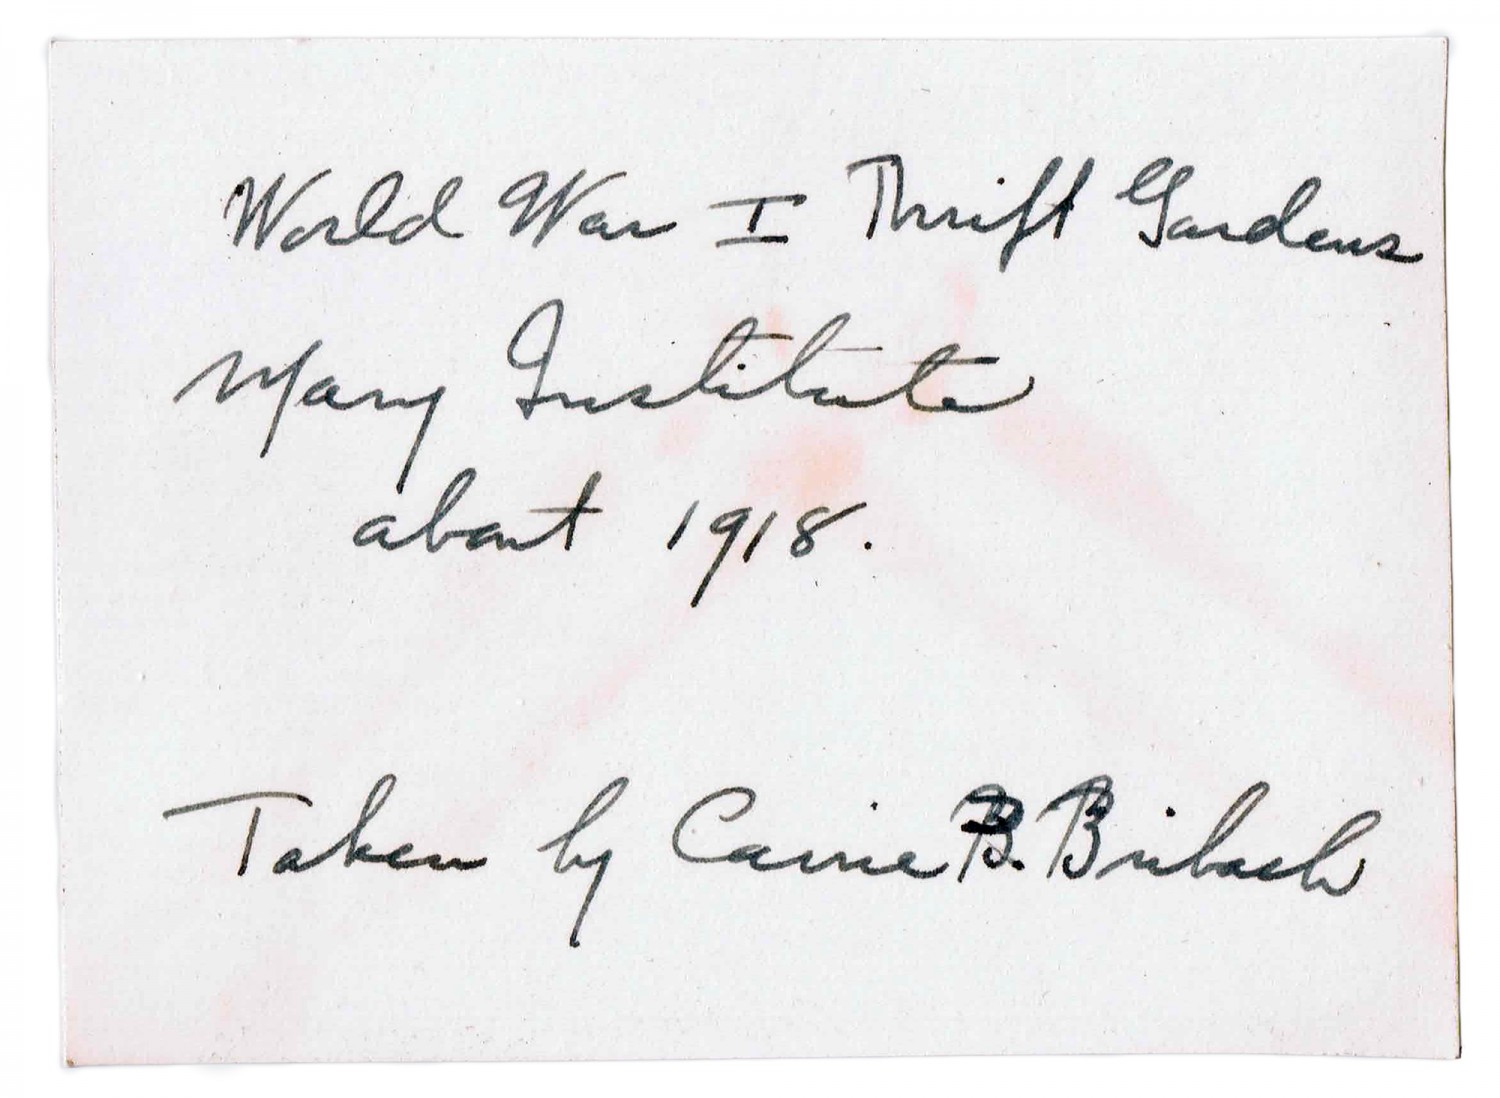 World War I Thrift Gardens
Mary Institute
about 1918.
Taken by Carrie B. Bribach